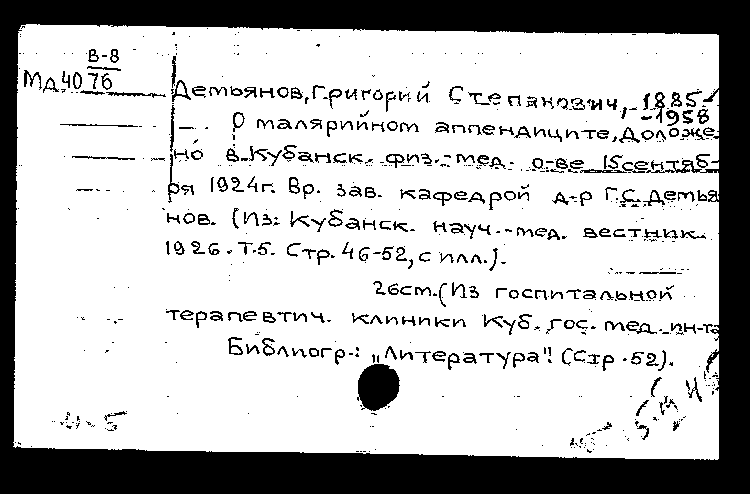 В-8
Мд 40 76
Демьянов, Григорий Степанович, 1885-
-1958
О малярийном аппендиците, Доложе
но в Кубанск. физ.-мед. о-ве 15 сентяб-
ря 1924г. Вр. зав. кафедрой д-р Г.С. Демья
нов. (Из: Кубанск. науч.-мед. вестник.
1926. Т.5. Стр. 46-52, с илл.).
26см. (Из госпитальной
терапевтич. клиники Куб. гос. мед. ин-та
Библиогр.: „Литература"! (Стр. 52).